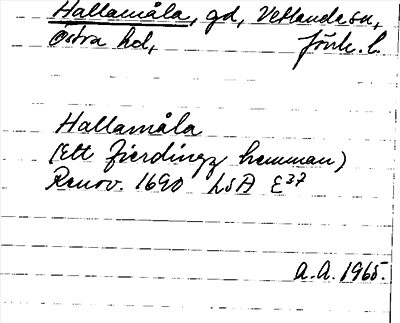 Hallamåla, gd, Vetlanda sn,
Östra hd, Jönk. l.
Hallamåla
(Ett fierdingz hemman)
Renov. 1690 LSA E37
A.A. 1965.